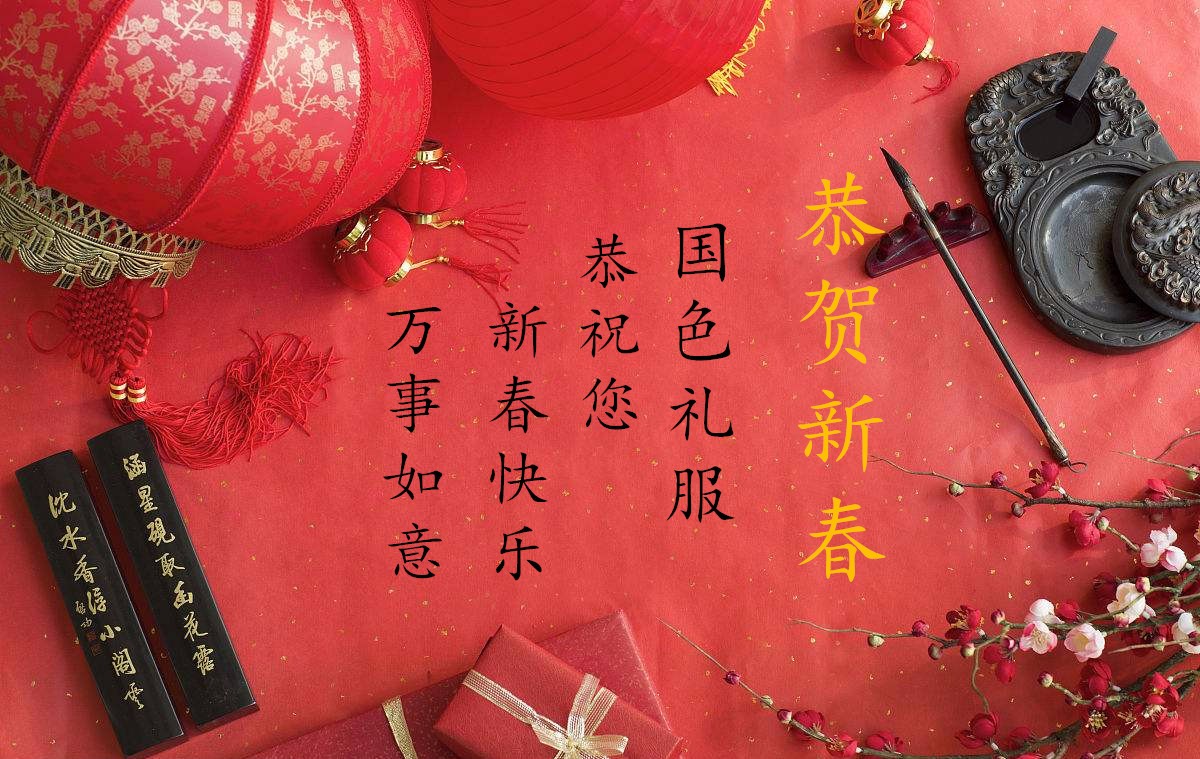 恭贺新春
国色礼服
恭祝您
新春快乐
万事如意
涵星硯取幽花露
沈水香浮小閣雲
啟功